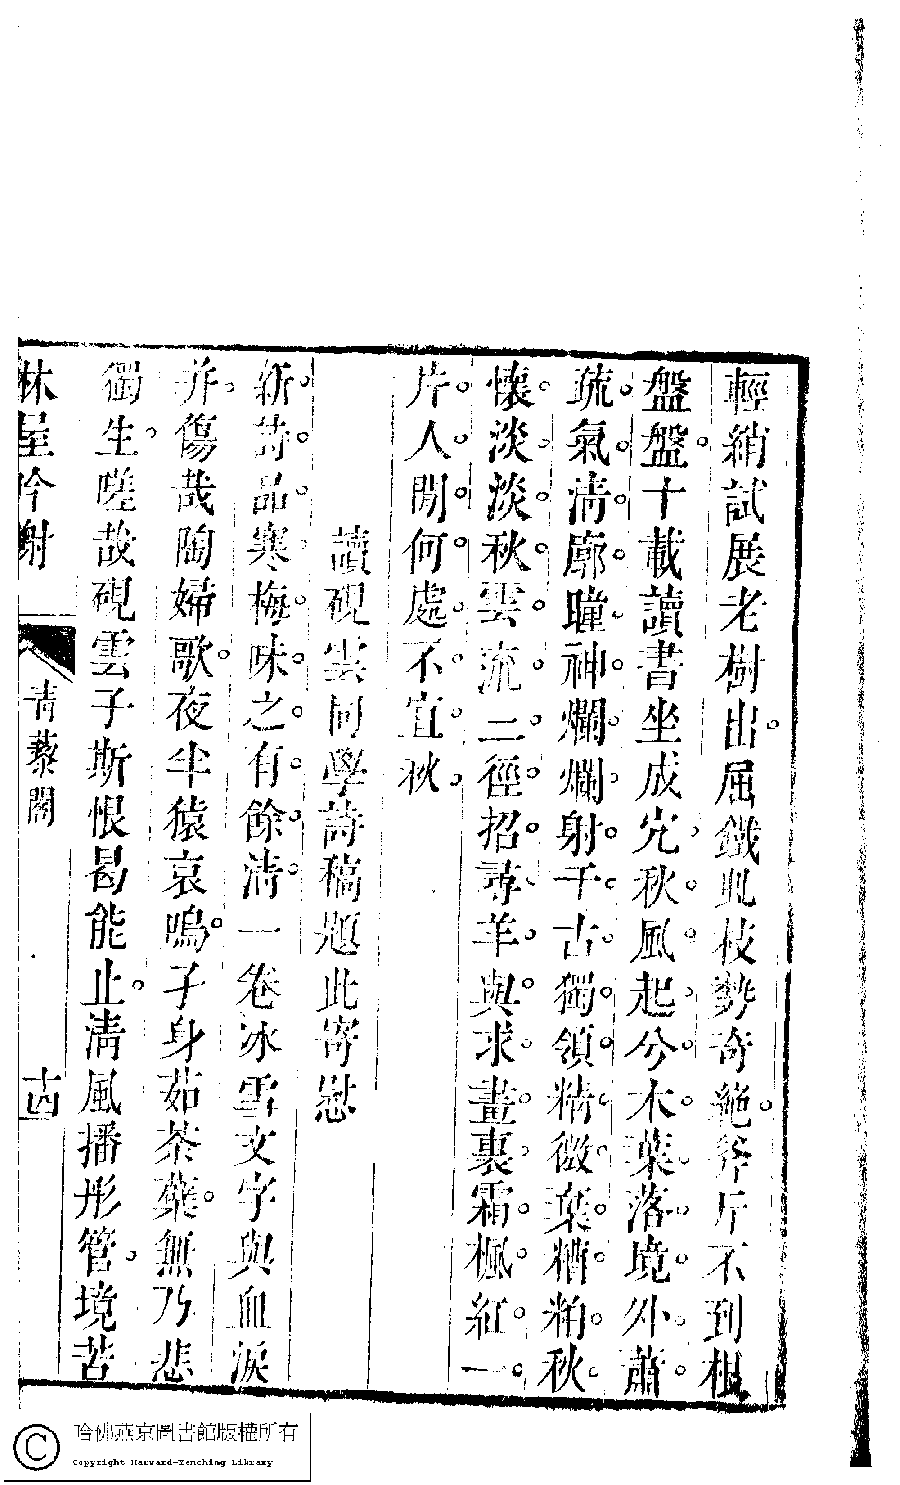 輕綃試展老樹出屈鐵虬枝勢奇絶斧斤不到根
盤盤十載讀書坐成宂秋風起兮木葉落境外蕭
疏氣淸廓瞳神爛爛射千古獨領精微棄糟粕秋
懷淡淡秋雲流二徑招尋羊與求畫裏霜楓紅一
片人閒何處不宜秋
讀硯雲同學詩稿題此寄慰
新詩品寒梅味之有餘淸一卷冰雪文字與血淚
幷傷哉陶婦歌夜半猿哀鳴子身茹荼蘗無乃悲
獨生嗟哉硯雲子斯恨曷能止淸風播彤管境苦
林屋吟榭
青藜閣
十四
哈佛燕京圖書館版權所有
Copyright Harvard-Yenching Library